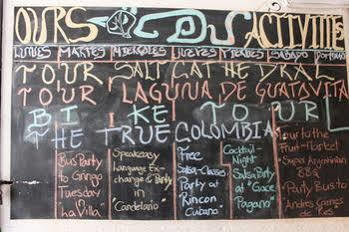 OURS & ACTIVITIE
LUNES MARTES MIERCOLES JUEVES VIERNES SABADO DOMINGO
TOUR SALT CATHEDRAL
TOUR LAGUNA DE GUATAVITA
BIKE TOUR
THE TRUE COLOMBIA
Bus Party
to Gringo
Tuesday
in
"La Villa"
Speakeasy
Language Ex-
change & Party
in
"Candelario"
Free
Salsa-Classes
Party at
Rincon
Cubano
Cocktail
Night
Salsa Party
at "Goce
Pagano"
Tour to the
Fruit-Market
Super Argentinian
BBQ
Party Bus to
"Andres Carnes
de Res"